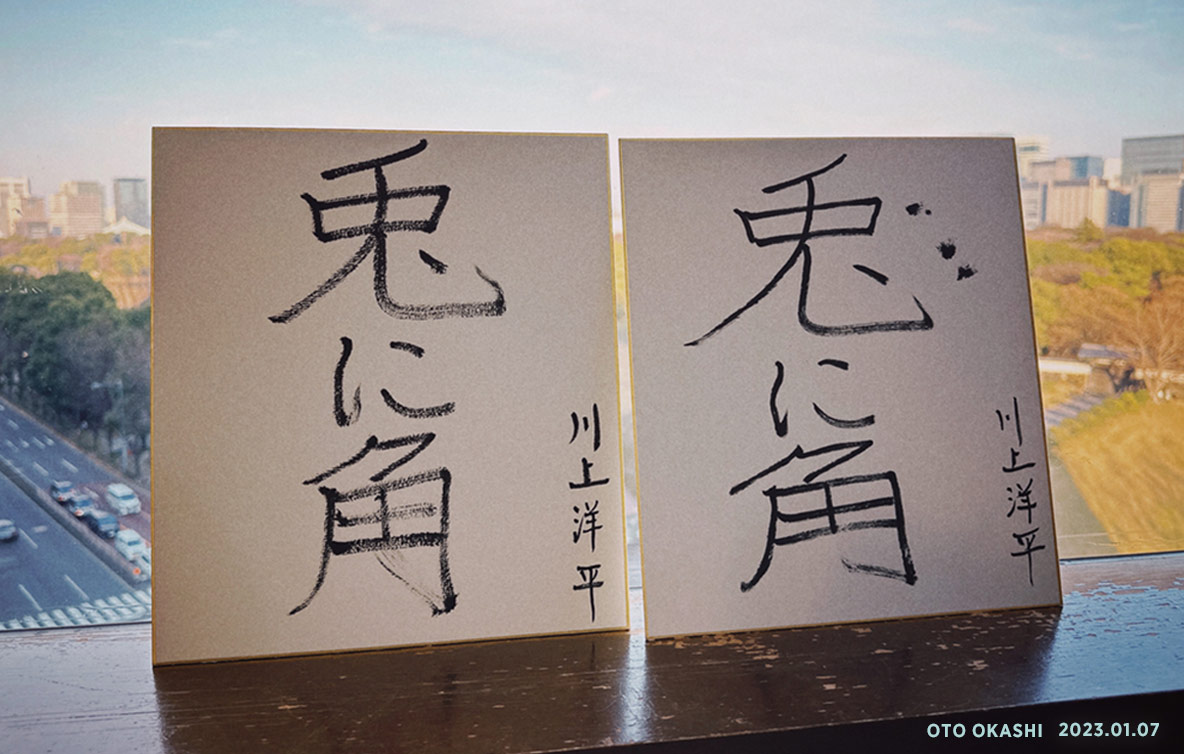 兎に角
川上洋平
兎に角
川上洋平
OTO OKASHI 2023.01.07